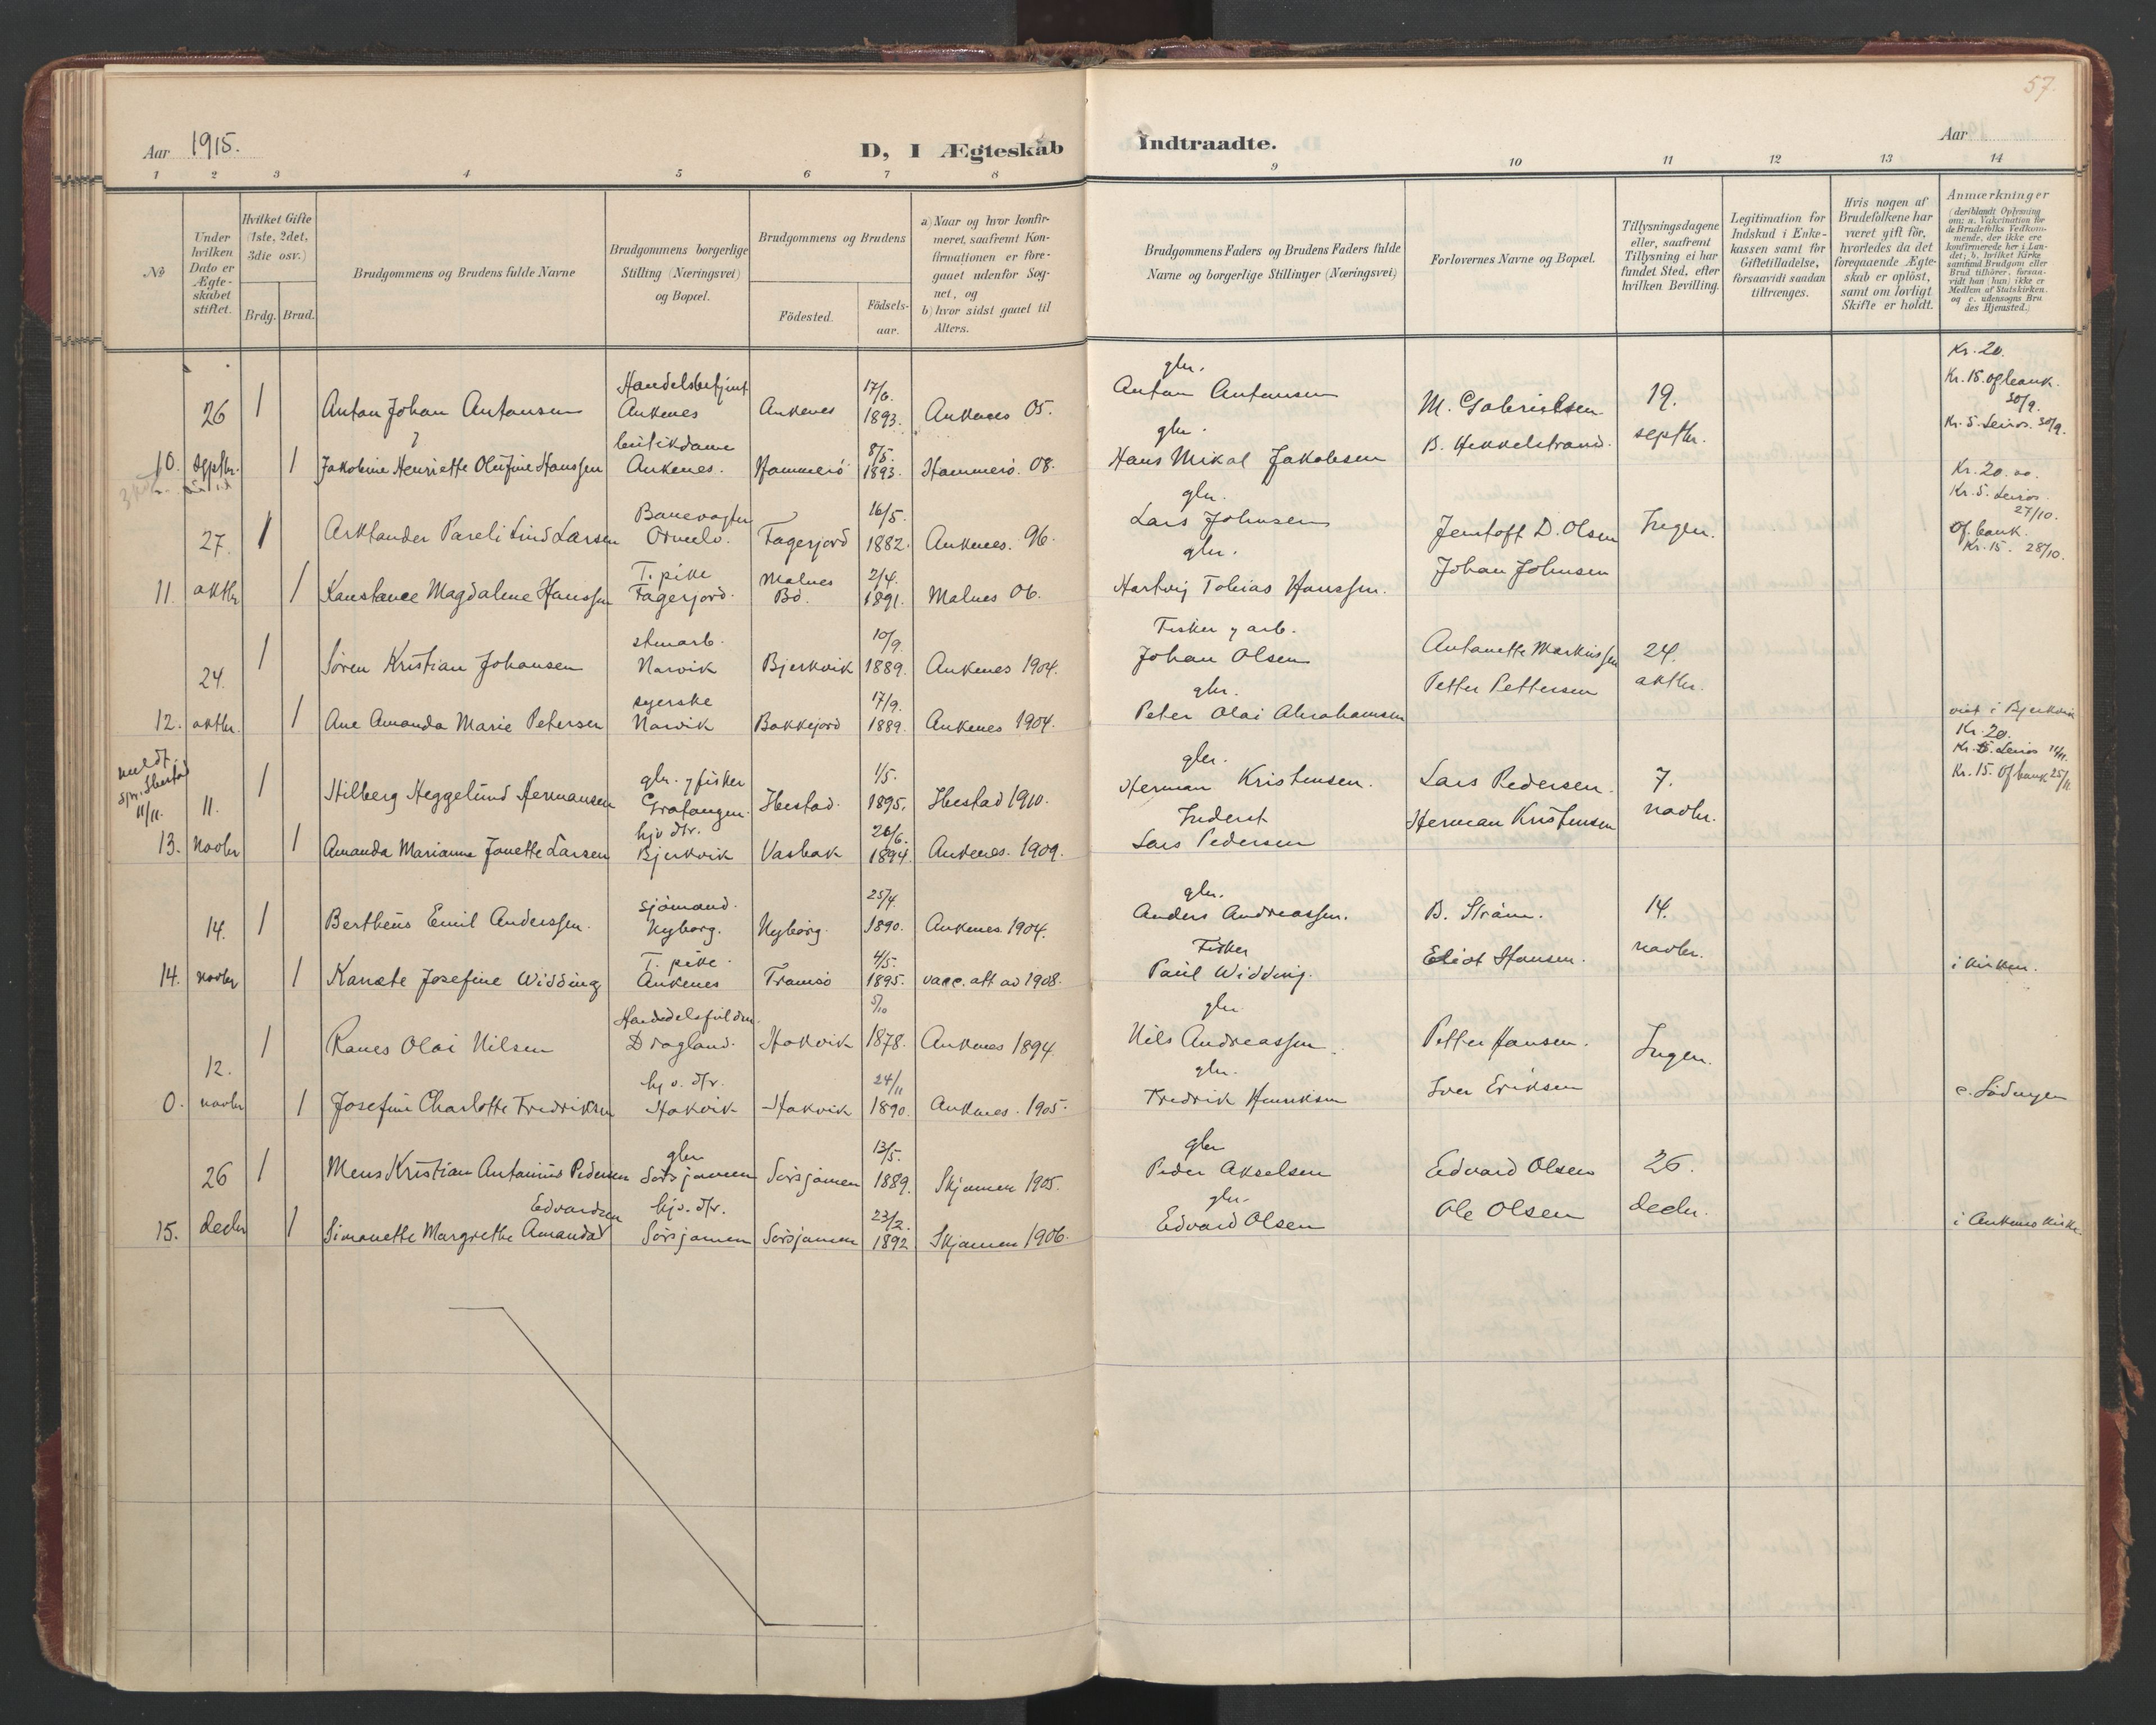 57.
Aar 1915.
D, I Ægteskab Indtraadte.
Aar
1 2 3 4 5 6 7 8 9 10 11 12 13 14
No
Under hvilken Dato er Ægteskabet stiftet.
Hvilket Gifte (1ste, 2det, 3die osv.)
Brdg. Brud.
Brudgommens og Brudens fulde Navne
Brudgommens borgerlige Stilling (Næringsvei) og Bopæl.
Brudgommens og Brudens
Födested.
Födselsaar.
a) Naar og hvor konfirmeret, saafremt Konfirmationen er foregaaet udenfor Sognet, og
b) hvor sidst gaaet til Alters.
Brudgommens Faders og Brudens Faders fulde Navne og borgerlige Stillinger (Næringsvei)
Forlovernes Navne og Bopæl.
Tillysningsdagene eller, saafremt Tillysning ei har fundet Sted, efter hvilken Bevilling.
Legitimation for Indskud i Enkekassen samt for Giftetilladelse, forsaavidt saadan tiltrænges.
Hvis nogen af Brudefolkene har været gift för, hvorledes da det foregaaende Ægteskab er oplöst, samt om lovligt Skifte er holdt.
Anmærkninger
(deriblandt Oplysning om: a. Vakcination for de Brudefolks Vedkommende, der ikke ere konfirmerede her i Landet; b. hvilket Kirkesamfund Brudgom eller Brud tilhörer, forsaavidt han (hun) ikke er Medlem af Statskirken, og c. udensogns Brudes Hjemsted.)
Handelsbetjent 17/6. glr. Kr. 20.
26 1 Anton Johan Antonsen Ankenes Ankenes 1893. Ankenes 05. Anton Antonsen M. Gabrielsen 19. Kr. 15. opl.bank. 30/9.
butikdame 8/5. glr. Kr. 5. Leiros. 30/9.
10. septbr. 1 Jakobine Henriette Olufine Hanssen Ankenes. Hammerö 1893. Hammerö. 08. Hans Mikal Jakobsen B. Hekkelstrand. septbr.
Banevogter 16/5. glr. Kr. 20.00 Kr. 5. Leiros. 27/10.
27. 1 Larsen Ornelv. Fagerjord 1882. Ankenes. 96. Lars Johnsen Jentoft D. Olsen Ingen. Of. bank. Kr. 15. 28/10.
T. pike Malnes 2/4. glr.
11. oktbr 1 Konstance Magdalene Hanssen Fagerjord. Bö. 1891. Malnes 06. Hartvig Tobias Hanssen. Johan Johnsen
stenarb. 10/9. Fisker og arb.
24. 1 Sören Kristian Johansen Narvik Bjerkvik 1889. Ankenes 1904. Johan Olsen Antonette Markussen 24.
syerske 17/9. glr.
12. oktbr. 1 Ane Amanda Marie Petersen Narvik Bakkejord 1889. Ankenes 1904. Peter Olai Abrahamsen Petter Pettersen oktbr. viet i Bjerkvik
meldt spr. Ibestad 11/11. glr. og fisker 1/5. glr. Kr. 20. Kr. 5. Leiros 11/11.
11. 1 Hilberg Heggelund Hermansen Gratangen. Ibestad. 1895. Ibestad 1910. Herman Kristensen. Lars Pedersen. 7. Kr. 15. Of bank 25/11
hjv. dtr. 26/6. Inderst
13. Novbr 1 Amanda Marianne Janette Larsen Bjerkvik Vasbak 1894. Ankenes. 1909. Lars Pedersen Herman Kristensen novbr.
sjömand. 25/4. glr.
14. 1 Bertheus Emil Anderssen. Nyborg. Nyborg. 1890. Ankenes. 1904. Anders Andreassen. B. Ström. 14.
T. pike. 4/5. Fisker
14. novbr 1 Josefine Widding Ankenes Tromsö 1895. vacc. att. av 1908. Paul Widding. Eliot Hansen. novbr. i kirken.
5/10 glr.
12. 1 Ranes Olai Nilsen Dragland. Hakvik 1878. Ankenes 1894. Nils Andreassen. Petter Hansen. Ingen.
hjv. dtr. 24/11 glr.
0. novbr 1 Josefine Charlotte Fredriksen Hakvik Hakvik 1890. Ankenes. 1905. Fredrik Henriksen Iver Eriksen c. Lödingen
glr 13/5. glr
26 1 Mens Kristian Antonius Pedersen Sörsjomen Sörsjomen 1889. Skjomen 1905. Peder Akselsen Edvard Olsen 26.
Edvardsen hjv. dtr. 23/2. glr.
15. decbr 1 Simonette Margrethe Amanda Sörsjomen Sörsjomen 1892 Skjomen 1906. Edvard Olsen Ole Olsen decbr. i Ankenes kirke.